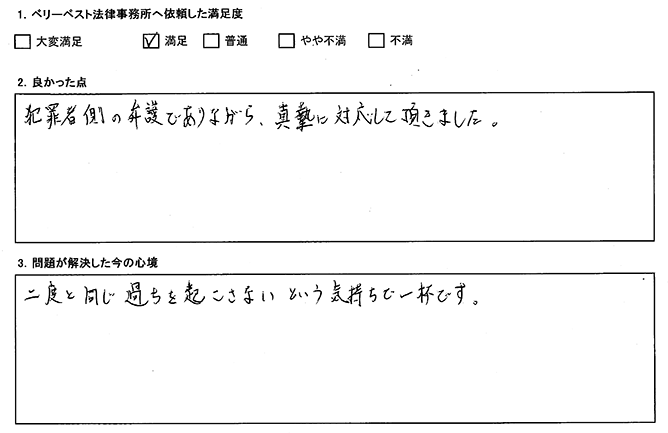 1. ベリーベスト法律事務所へ依頼した満足度
□ 大変満足 ☑ 満足 □ 普通 □ やや不満 □ 不満
2. 良かった点
犯罪者側の弁護でありながら、真摯に対応して頂きました。
3. 問題が解決した今の心境
二度と同じ過ちを起こさないという気持ちで一杯です。